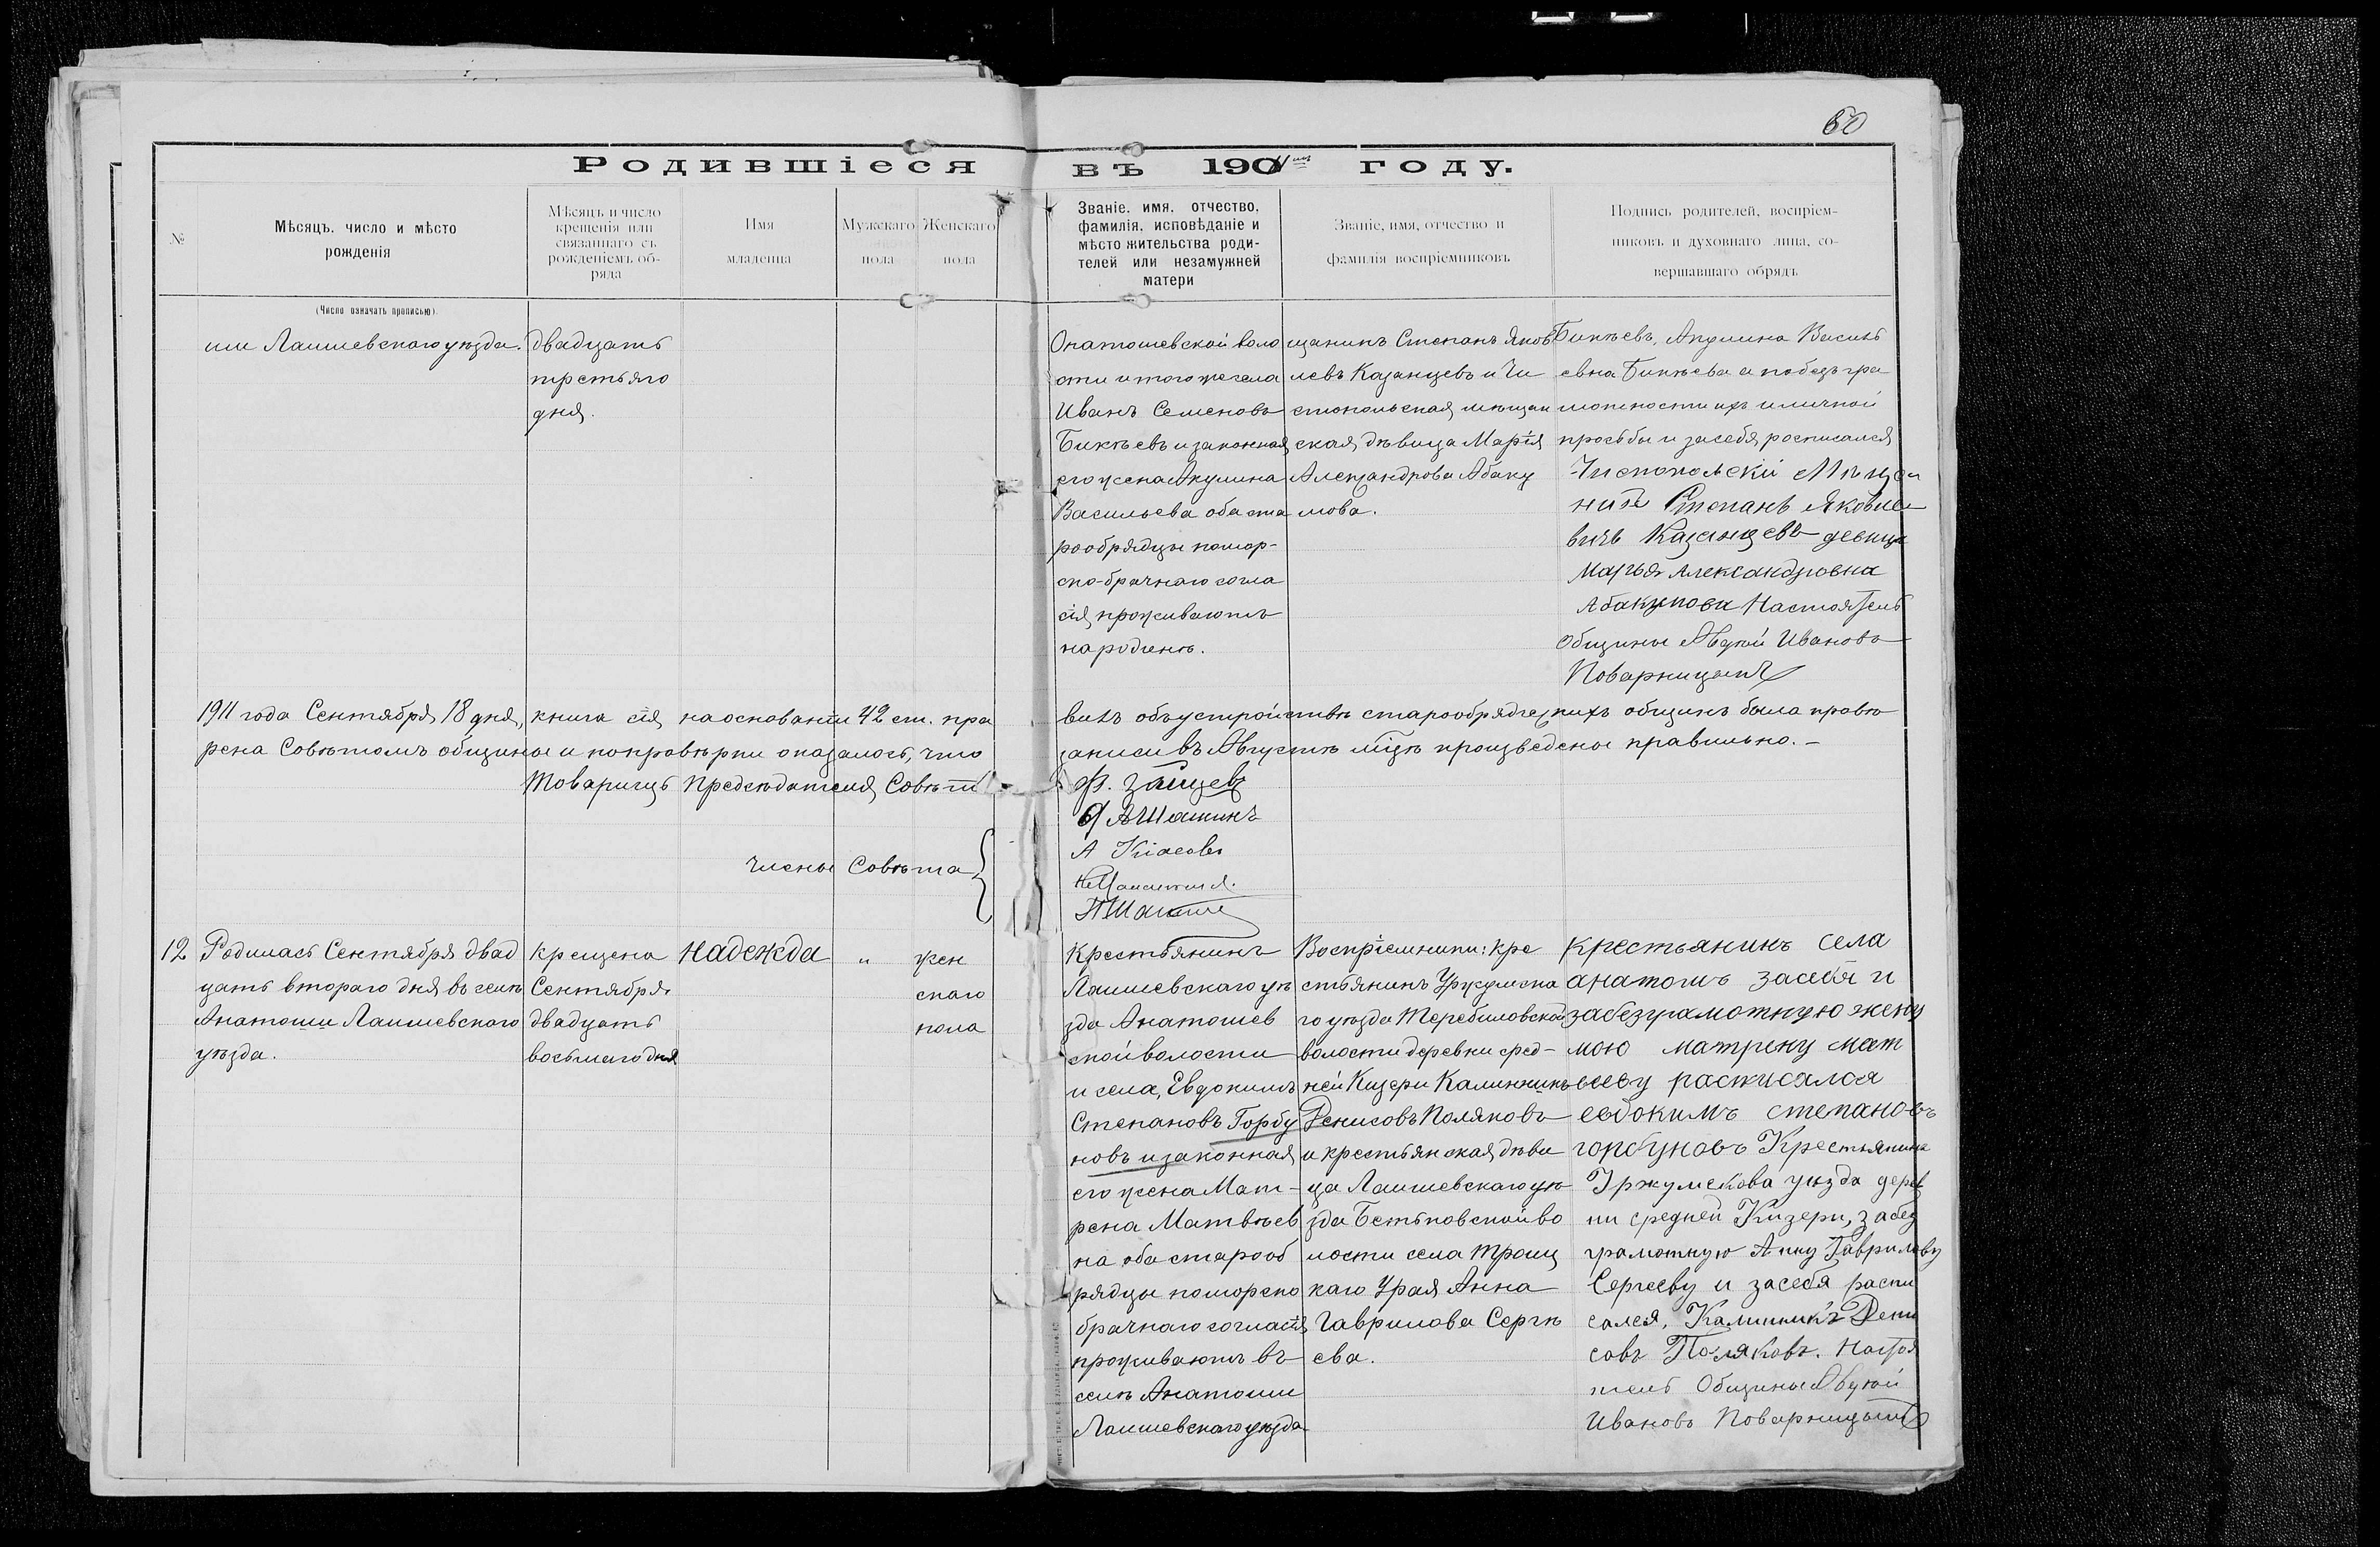 60
Родившіеся въ 1911мъ году.
№
Мѣсяцъ, число и мѣсто
рожденія
(Число означать прописью).
Мѣсяцъ и число
крещенія или
связаннаго съ
рожденіемъ об-
ряда
Имя
младенца
Мужскаго
пола
Женскаго
пола
Званіе, имя, отчество,
фамилія, исповѣданіе и
мѣсто жительства роди-
телей или незамужней
матери
Званіе, имя, отчество и
фамилія воспріемниковъ
Подпись родителей, воспріем-
никовъ и духовнаго лица, со-
вершавшаго обрядъ
ши Лаишевскаго уѣзда.
двадцать
третьяго
дня.
Анатошевской воло
сти и того же села
Иванъ Семеновъ
Бикѣевъ и законная
его жена Акулина
Васильева оба ста
рообрядцы помор-
ско-брачнаго согла
сія, проживаютъ
на родинѣ.
щанинъ Степанъ Яков
левъ Казанцевъ и Чи
стопольская мѣщан
ская дѣвица Марія
Александрова Абаку
мова.
Бикѣевъ, Акулина Василь
евна Бикѣева а по безгра
мотности ихъ и личной
просьбы и за себя росписался
Чистопольскій Мѣща
нинъ Степанъ Яковле
вичъ Казанцевъ девица
Марья Александровна
Абакумова Настоятель
Общины Авдѣй Ивановъ
Поварницынъ
1911 года Сентября 18 дня, книга сія на основаніи 42 ст. пра
вилъ объ устройствѣ старообрядческихъ общинъ была провѣ
рена Совѣтомъ общины и по провѣрки оказалось, что
записи въ Августѣ м-цѣ произведены правильно. -
Товарищъ Председателя Совѣта
Ф. Зайцев
Члены Совѣта
Шашинъ
12
Родилась Сентября двад
цать втораго дня въ селѣ
Анатоши Лаишевскаго
уѣзда.
крещена
Сентября
двадцать
восьмаго дня
Надежда
"
жен
скаго
пола
Крестьянинъ
Лаишевскаго уѣ
зда Анатошев
ской волости
и села, Евдокимъ
Степановъ Горбу
новъ и законная
его жена Мат-
рена Матвѣев
на оба старооб
рядцы поморско
брачнаго согласія,
проживаютъ въ
селѣ Анатоши
Лаишевскаго уѣзда
Воспріемники: кре
стьянинъ Уржумска
го уѣзда Теребиловской
волости деревни сред-
ней Кизери Калинникъ
Денисовъ Поляковъ
и крестьянская дѣви
ца Лаишевскаго уѣ
зда Бетьковской во
лости села Троиц
каго Урая Анна
Гаврилова Сергѣ
ева.
крестьянинъ села
анатошъ засебя и
забезграмотную жену
мою матрену мат
вееву расписался
евдокимъ степановъ
горбуновъ Крестьянинъ
Уржумскова уѣзда дерев
ни средней Кизери, забез
грамотную Анну Гаврилову
Сергееву и засебя распи
сался, Калинникъ Дени
совъ Поляковъ. Настоя
тель Общины Авдѣй
Ивановъ Поварницынъ